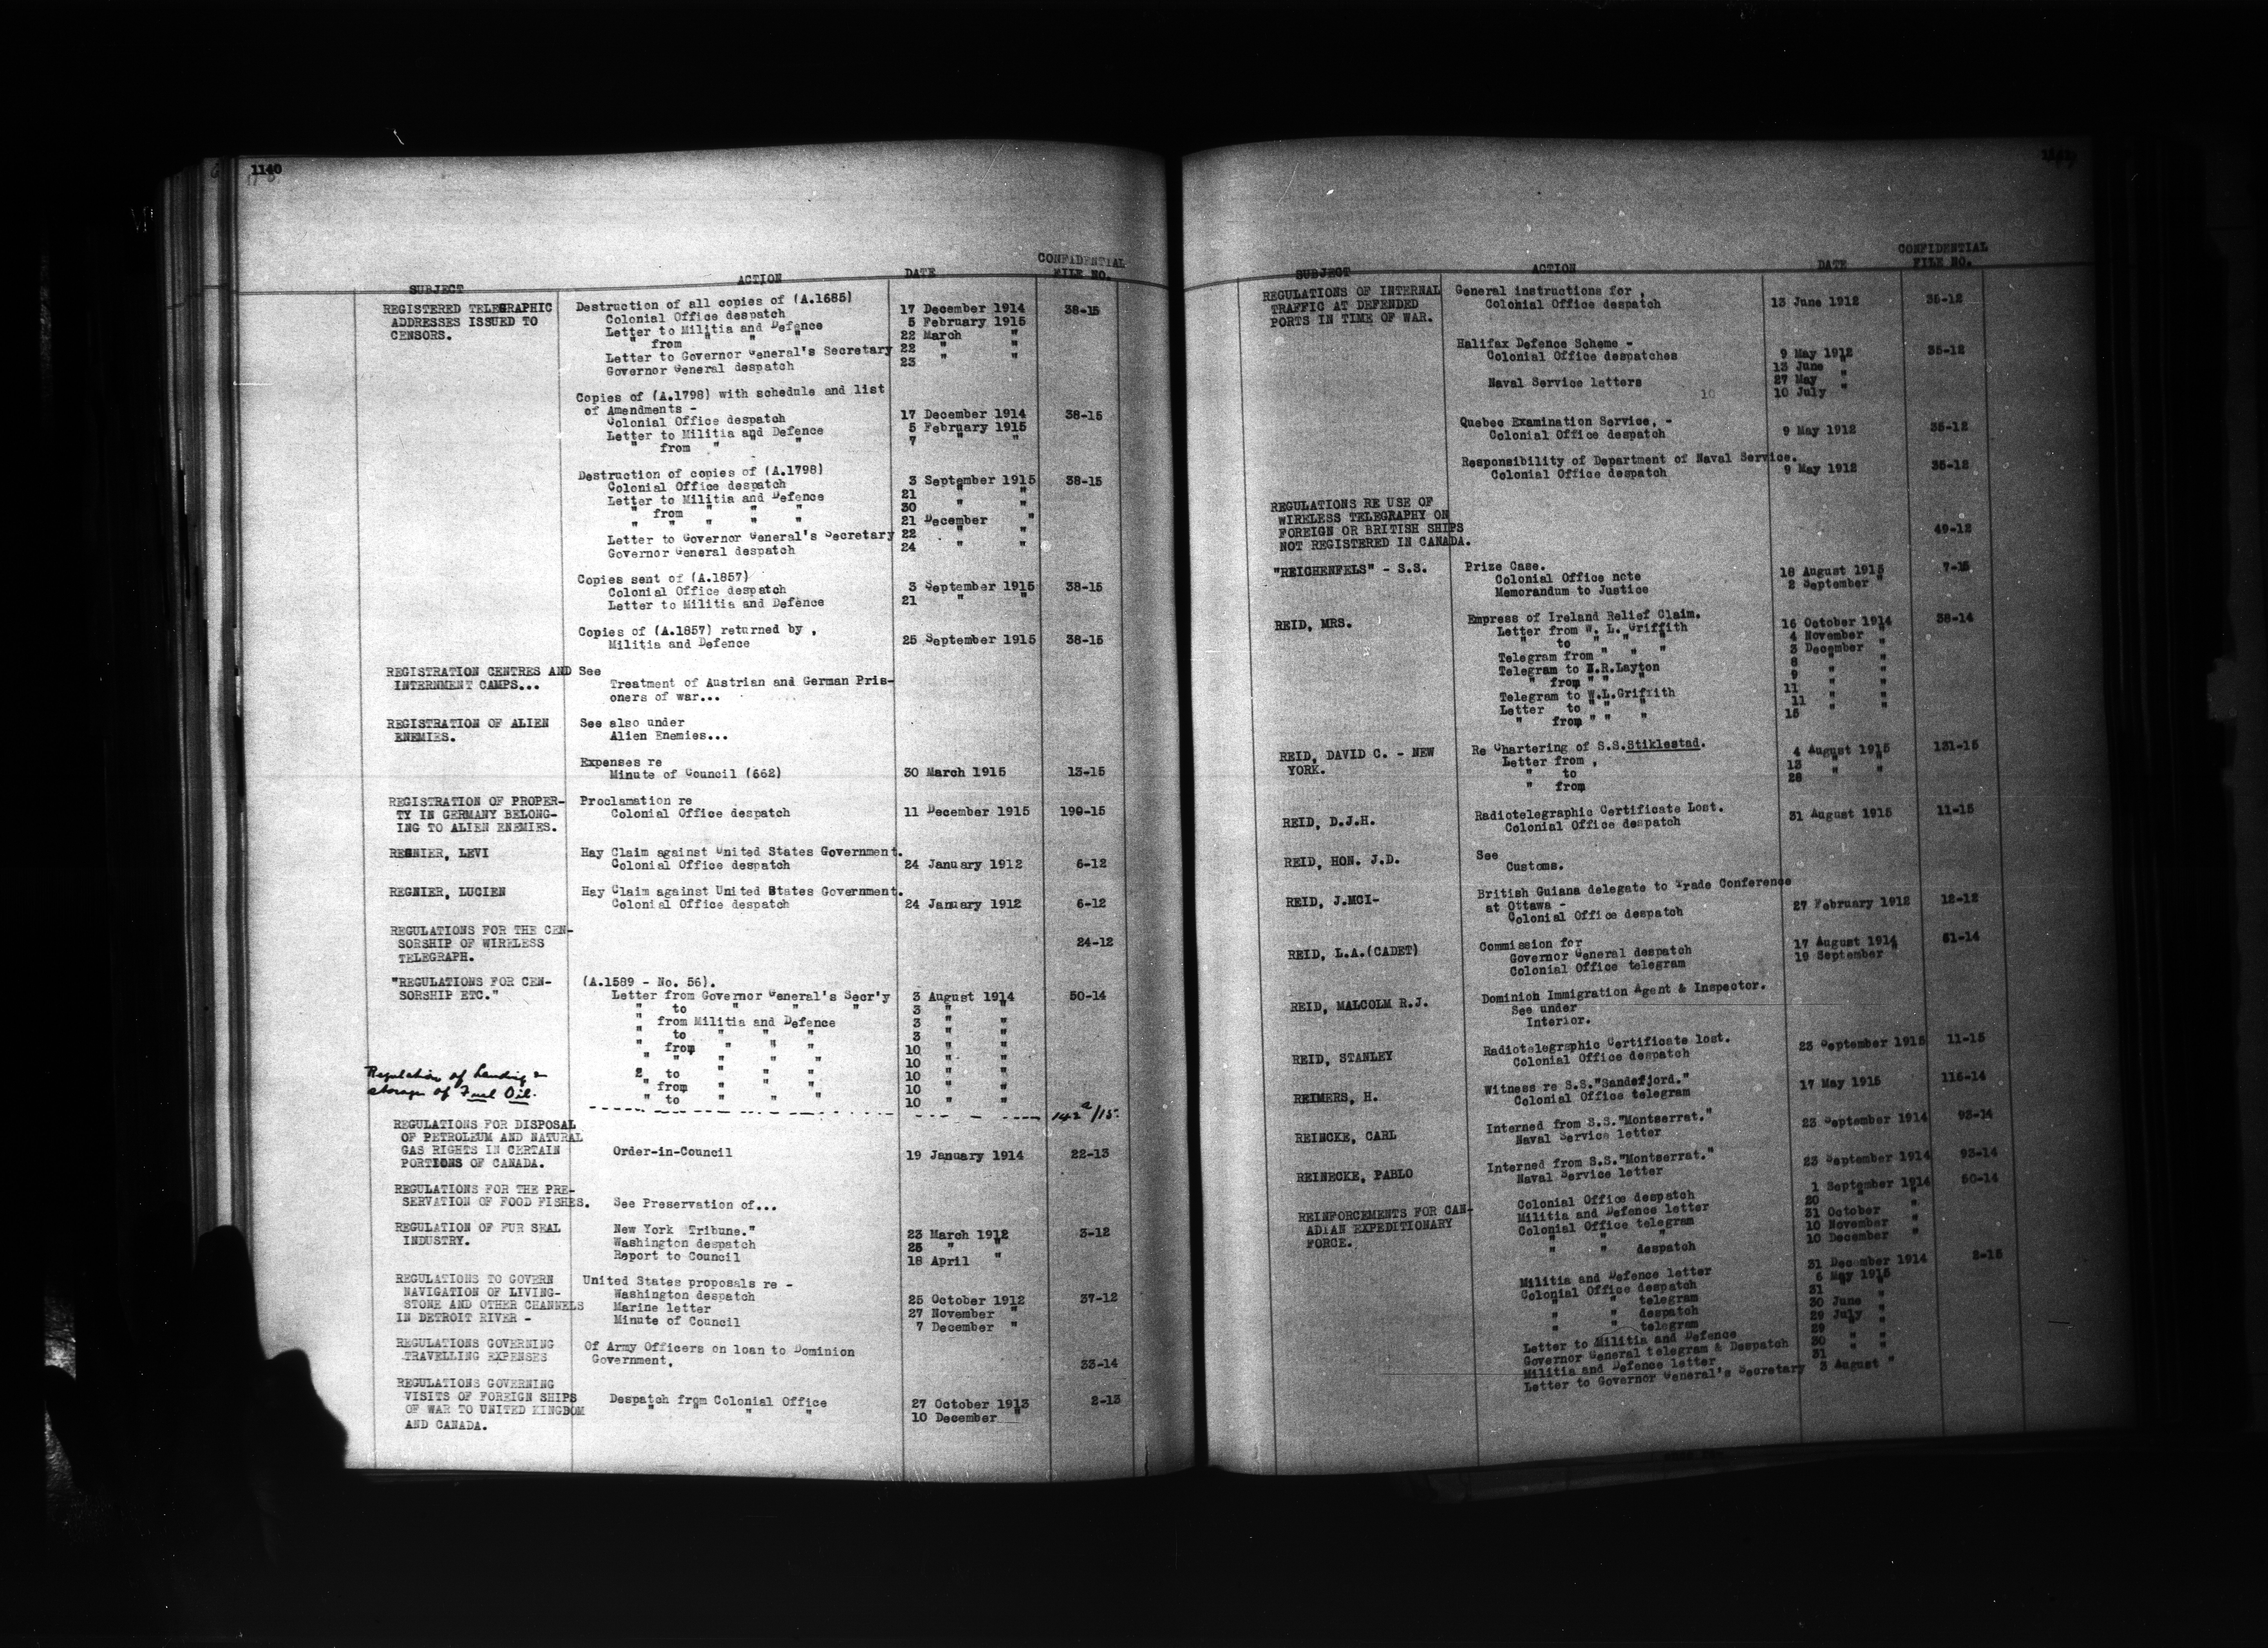 1140
SUBJECT ACTION DATE CONFIDENTIAL FILE NO.
REGISTERED TELEGRAPHIC Destruction of all copies of (A.1685)
ADDRESSES ISSUED TO Colonial Office despatch 17 December 1914 38-15
CENSORS. Letter to Militia and Defence 5 February 1915
" from " " " 22 March "
Letter to Governor General's Secretary 22 " "
Governor General despatch 23 " "
Copies of (A.1798) with schedule and list
of Amendments -
Colonial Office despatch 17 December 1914 38-15
Letter to Militia and Defence 5 February 1915
" from " " " 7 " "
Destruction of copies of (A.1798)
Colonial Office despatch 3 September 1915 38-15
Letter to Militia and Defence 21 " "
" from " " " 30 " "
" " " " " 21 December "
Letter to Governor General's Secretary 22 " "
Governor General despatch 24 " "
Copies sent of (A.1857)
Colonial Office despatch 3 September 1915 38-15
Letter to Militia and Defence 21 " "
Copies of (A.1857) returned by ,
Militia and Defence 25 September 1915 38-15
REGISTRATION CENTRES AND See
INTERNMENT CAMPS... Treatment of Austrian and German Pris-
oners of war...
REGISTRATION OF ALIEN See also under
ENEMIES. Alien Enemies...
Expenses re
Minute of Council (662) 30 March 1915 13-15
REGISTRATION OF PROPER- Proclamation re
TY IN GERMANY BELONG- Colonial Office despatch 11 December 1915 190-15
ING TO ALIEN ENEMIES.
REGNIER, LEVI Hay Claim against United States Government.
Colonial Office despatch 24 January 1912 6-12
REGNIER, LUCIEN Hay Claim against United States Government.
Colonial Office despatch 24 January 1912 6-12
REGULATIONS FOR THE CEN-
SORSHIP OF WIRELESS 24-12
TELEGRAPH.
"REGULATIONS FOR CEN- (A.1589 - No. 56).
SORSHIP ETC." Letter from Governor General's Secr'y 3 August 1914 50-14
" to " " " 3 " "
" from Militia and Defence 3 " "
" to " " " 3 " "
" from " " " 10 " "
" " " " " 10 " "
2 to " " " 10 " "
" from " " " 10 " "
" to " " " 10 " "
Regulation of Landing &
storage of Fuel Oil. 142a/15.
REGULATIONS FOR DISPOSAL
OF PETROLEUM AND NATURAL
GAS RIGHTS IN CERTAIN Order-in-Council 19 January 1914 22-13
PORTIONS OF CANADA.
REGULATIONS FOR THE PRE-
SERVATION OF FOOD FISHES. See Preservation of...
REGULATION OF FUR SEAL New York Tribune." 23 March 1912 3-12
INDUSTRY. Washington despatch 25 " "
Report to Council 18 April "
REGULATIONS TO GOVERN United States proposals re -
NAVIGATION OF LIVING- Washington despatch 25 October 1912 37-12
STONE AND OTHER CHANNELS Marine letter 27 November "
IN DETROIT RIVER - Minute of Council 7 December "
REGULATIONS GOVERNING Of Army Officers on loan to Dominion
TRAVELLING EXPENSES Government. 33-14
REGULATIONS GOVERNING
VISITS OF FOREIGN SHIPS Despatch from Colonial Office 27 October 1913 2-13
OF WAR TO UNITED KINGDOM " " " " 10 December "
AND CANADA.
SUBJECT ACTION DATE CONFIDENTIAL FILE NO.
REGULATIONS OF INTERNAL General instructions for ,
TRAFFIC AT DEFENDED Colonial Office despatch 13 June 1912 35-12
PORTS IN TIME OF WAR.
Halifax Defence Scheme -
Colonial Office despatches 9 May 1912 35-12
13 June "
Naval Service letters 27 May "
10 10 July "
Quebec Examination Service, -
Colonial Office despatch 9 May 1912 35-12
Responsibility of Department of Naval Service.
Colonial Office despatch 9 May 1912 35-12
REGULATIONS RE USE OF
WIRELESS TELEGRAPHY ON
FOREIGN OR BRITISH SHIPS 49-12
NOT REGISTERED IN CANADA.
"REICHENFELS" - S.S. Prize Case.
Colonial Office note 18 August 1915 7-15
Memorandum to Justice 2 September "
REID, MRS. Empress of Ireland Relief Claim.
Letter from W. L. Griffith 16 October 1914 38-14
" to " " " 4 November "
Telegram from " " " 3 December "
Telegram to H.R.Layton 8 " "
" from " " " 9 " "
Telegram to W.L.Griffith 11 " "
Letter to " " " 11 " "
" from " " " 15
REID, DAVID C. - NEW Re Chartering of S.S.Stiklestad.
YORK. Letter from , 4 August 1915 131-15
" to 13 " "
" from 28 " "
REID, D.J.H. Radiotelegraphic Certificate Lost.
Colonial Office despatch 31 August 1915 11-15
REID, HON. J.D. See
Customs.
REID, J.MCI- British Guiana delegate to Trade Conference
at Ottawa -
Colonial Office despatch 27 February 1912 12-12
REID, L.A.(CADET) Commission for
Governor General despatch 17 August 1914 51-14
Colonial Office telegram 19 September "
REID, MALCOLM R.J. Dominion Immigration Agent & Inspector.
See under
Interior.
REID, STANLEY Radiotelegraphic Certificate lost.
Colonial Office despatch 23 September 1915 11-15
REIMERS, H. Witness re S.S."Sandefjord."
Colonial Office telegram 17 May 1915 116-14
REINCKE, CARL Interned from S.S."Montserrat."
Naval Service letter 23 September 1914 93-14
REINECKE, PABLO Interned from S.S."Montserrat."
Naval Service letter 23 September 1914 93-14
REINFORCEMENTS FOR CAN- Colonial Office despatch 1 September 1914 50-14
ADIAN EXPEDITIONARY Militia and Defence letter 20 " "
FORCE. Colonial Office telegram 31 October "
" " " 10 November "
" " despatch 10 December "
Militia and Defence letter 31 December 1914 2-15
Colonial Office despatch 6 May 1915
" " telegram 31 " "
" " despatch 30 June "
" " telegram 29 July "
Letter to Militia and Defence 29 " "
Governor General telegram & Despatch 30 " "
Militia and Defence letter 31 " "
Letter to Governor General's Secretary 3 August "